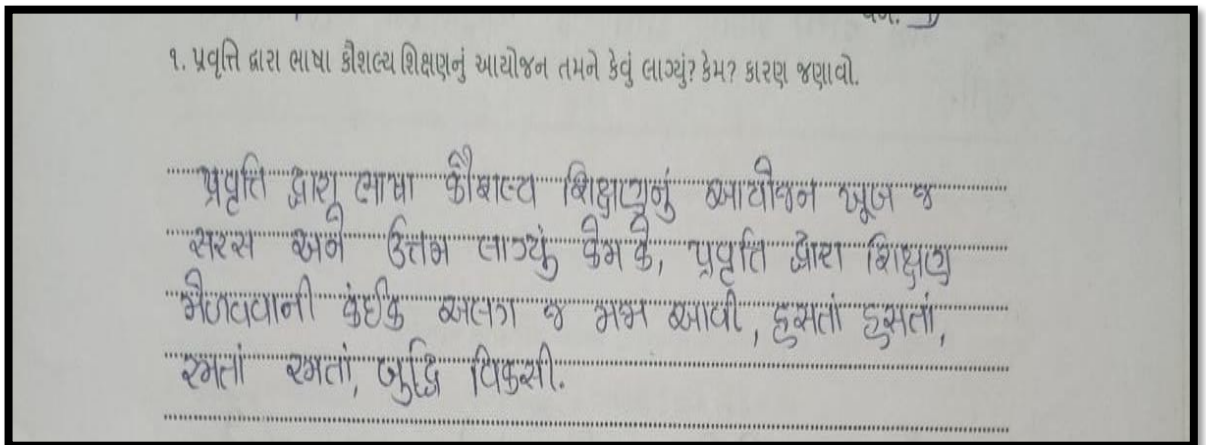 ૧. પ્રવૃત્તિ દ્વારા ભાષા કૌશલ્ય શિક્ષણનું આયોજન તમને કેવું લાગ્યું? કેમ? કારણ જણાવો.
પ્રવૃત્તિ દ્વારા ભાષા કૌશલ્ય શિક્ષણનું આયોજન ખૂબ જ
સરસ અને ઉત્તમ લાગ્યું કેમ કે, પ્રવૃત્તિ દ્વારા શિક્ષણ
મેળવવાની કંઈક અલગ જ મજા આવી, હસતાં હસતાં,
રમતાં રમતાં, બુદ્ધિ વિકસી.